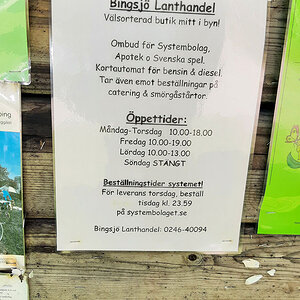 Bingsjö Lanthandel
Välsorterad butik mitt i byn!
Ombud för Systembolag,
Apotek o Svenska spel.
Kortautomat för bensin & diesel.
Tar även emot beställningar på
catering & smörgåstårtor.
Öppettider:
Måndag-Torsdag 10.00-18.00
Fredag 10.00-19.00
Lördag 10.00-13.00
Söndag STÄNGT
Beställningstider systemet!
För leverans torsdag, beställ
tisdag kl. 23.59
på systembolaget.se
Bingsjö Lanthandel: 0246-40094